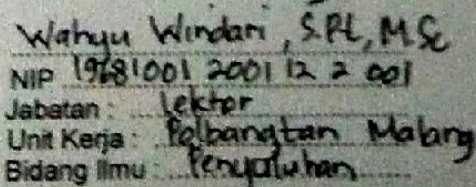 Wahyu Windari, S.Pt, M.Sc
NIP 19681001 2001 12 2 001
Jabatan : Lektor
Unit Kerja : Polbangtan Malang
Bidang Ilmu : Penyuluhan